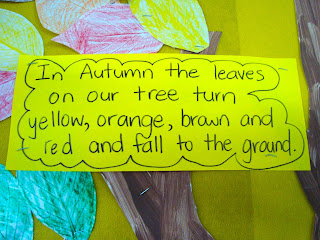 In Autumn the leaves
on our tree turn
yellow, orange, brown and
red and fall to the ground.